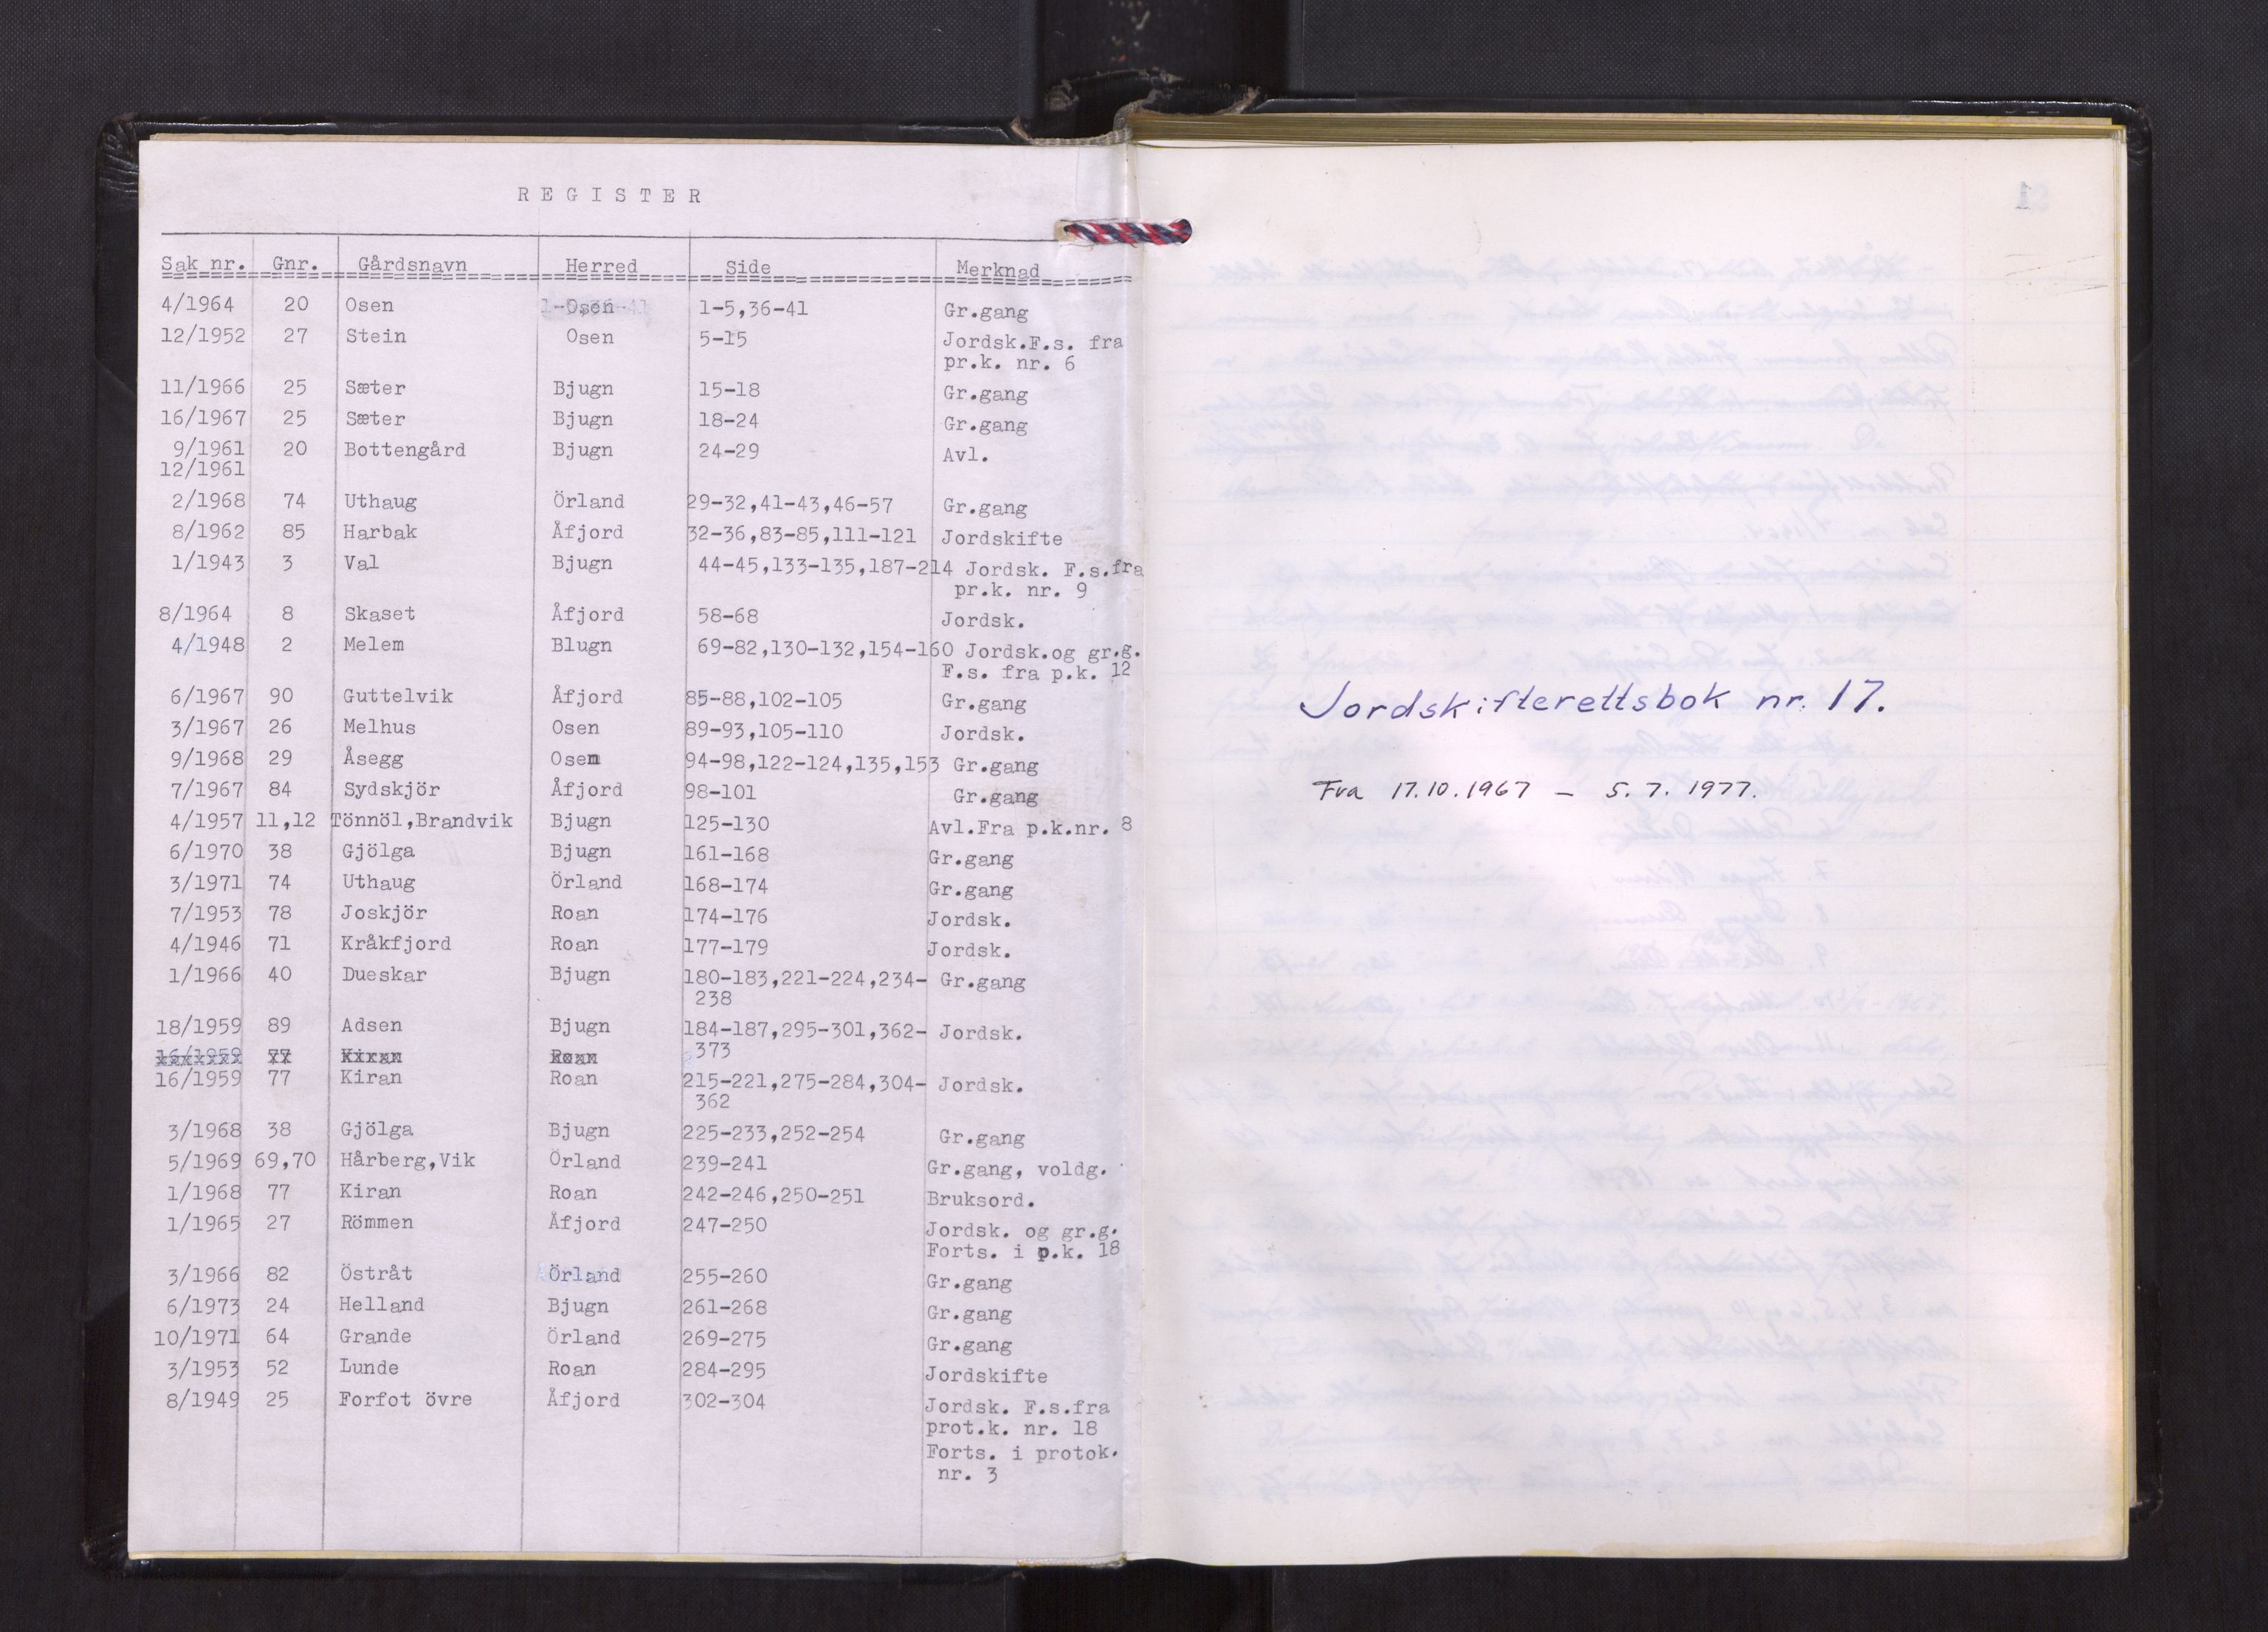 REGISTER
Sak nr. Gnr. Gårdsnavn Herred Side Merknad
4/1964 20 Osen Osen 1-5,36-41 Gr.gang
12/1952 27 Stein Osen 5-15 Jordsk.F.s. fra
pr.k. nr. 6
11/1966 25 Sæter Bjugn 15-18 Gr.gang
16/1967 25 Sæter Bjugn 18-24 Gr.gang
9/1961 20 Bottengård Bjugn 24-29 Avl.
12/1961
2/1968 74 Uthaug Örland 29-32,41-43,46-57 Gr.gang
8/1962 85 Harbak Åfjord 32-36,83-85,111-121 Jordskifte
1/1943 3 Val Bjugn 44-45,133-135,187-214 Jordsk. F.s.fra
pr.k. nr. 9
8/1964 8 Skaset Åfjord 58-68 Jordsk.
4/1948 2 Melem Blugn 69-82,130-132,154-160 Jordsk.og gr.g.
F.s. fra p.k. 12
6/1967 90 Guttelvik Åfjord 85-88,102-105 Gr.gang
3/1967 26 Melhus Osen 89-93,105-110 Jordsk.
9/1968 29 Åsegg Osen 94-98,122-124,135,153 Gr.gang
7/1967 84 Sydskjör Åfjord 98-101 Gr.gang
4/1957 11,12 Tönnöl,Brandvik Bjugn 125-130 Avl.Fra p.k.nr. 8
6/1970 38 Gjölga Bjugn 161-168 Gr.gang
3/1971 74 Uthaug Örland 168-174 Gr.gang
7/1953 78 Joskjör Roan 174-176 Jordsk.
4/1946 71 Kråkfjord Roan 177-179 Jordsk.
1/1966 40 Dueskar Bjugn 180-183,221-224,234- Gr.gang
238
18/1959 89 Adsen Bjugn 184-187,295-301,362- Jordsk.
16/1959 77 Kiran Roan 373
16/1959 77 Kiran Roan 215-221,275-284,304- Jordsk.
362
3/1968 38 Gjölga Bjugn 225-233,252-254 Gr.gang
5/1969 69,70 Hårberg,Vik Örland 239-241 Gr.gang, voldg.
1/1968 77 Kiran Roan 242-246,250-251 Bruksord.
1/1965 27 Römmen Åfjord 247-250 Jordsk. og gr.g.
Forts. i p.k. 18
3/1966 82 Östråt Örland 255-260 Gr.gang
6/1973 24 Helland Bjugn 261-268 Gr.gang
10/1971 64 Grande Örland 269-275 Gr.gang
3/1953 52 Lunde Roan 284-295 Jordskifte
8/1949 25 Forfot övre Åfjord 302-304 Jordsk. F.s.fra
prot.k. nr. 18
Forts. i protok.
nr. 3
Jordskifterettsbok nr. 17.
Fra 17.10.1967 – 5.7.1977.